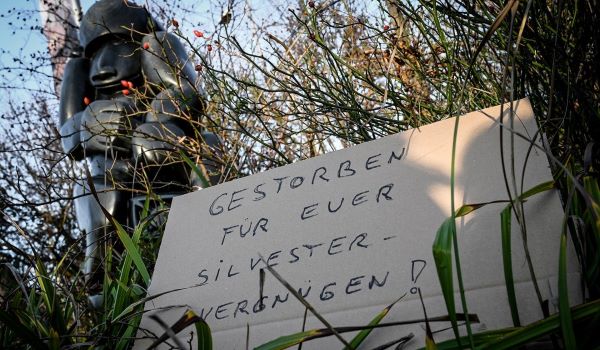 GESTORBEN
FÜR EUER
SILVESTER-
VERGNÜGEN!